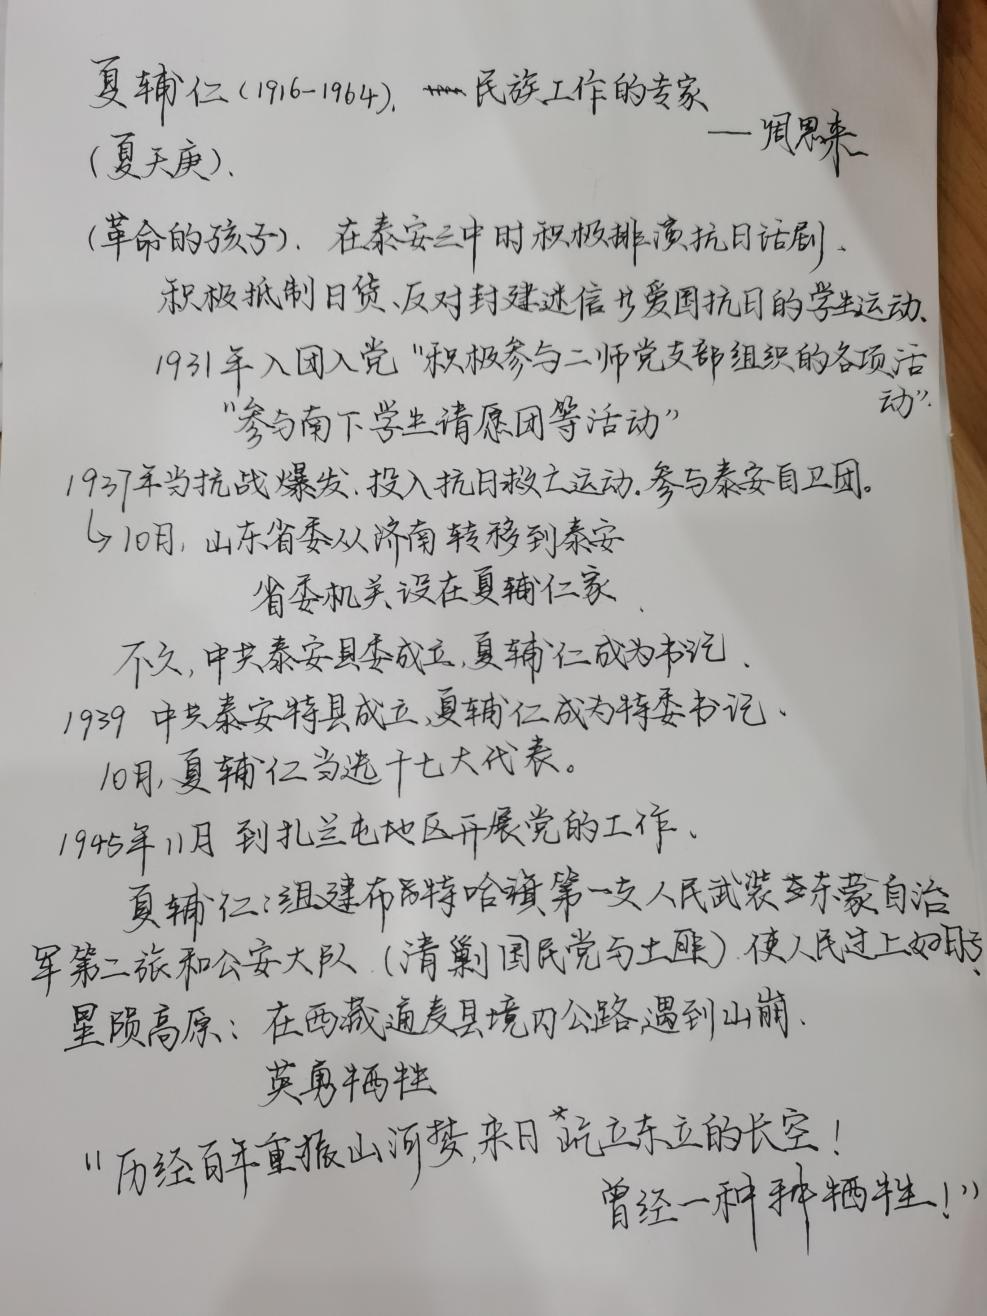 夏辅仁(1916-1964). 民族工作的专家
——周恩来
(夏天庚).
(革命的孩子). 在泰安三中时积极排演抗日话剧、
积极抵制日货、反对封建迷信 爱国抗日的学生运动、
1931年入团入党"积极参与二师党支部组织的各项活
动".
"参与南下学生请愿团等活动"
1937年当抗战爆发、投入抗日救亡运动.参与泰安自卫团。
↳10月, 山东省委从济南转移到泰安
省委机关设在夏辅仁家、
不久,中共泰安县委成立,夏辅仁成为书记、
1939 中共泰安特县成立,夏辅仁成为特委书记、
10月,夏辅仁当选十七大代表。
1945年11月 到扎兰屯地区开展党的工作、
夏辅仁:组建布西特哈旗第一支人民武装 东蒙自治
军第二旅和公安大队 (清剿国民党与土匪) 使人民过上好日子、
星陨高原: 在西藏通麦县境内公路遇到山崩、
英勇牺牲
"历经百年重振山河梦,来日 屹立东立的长空!
曾经一种种牺牲!"